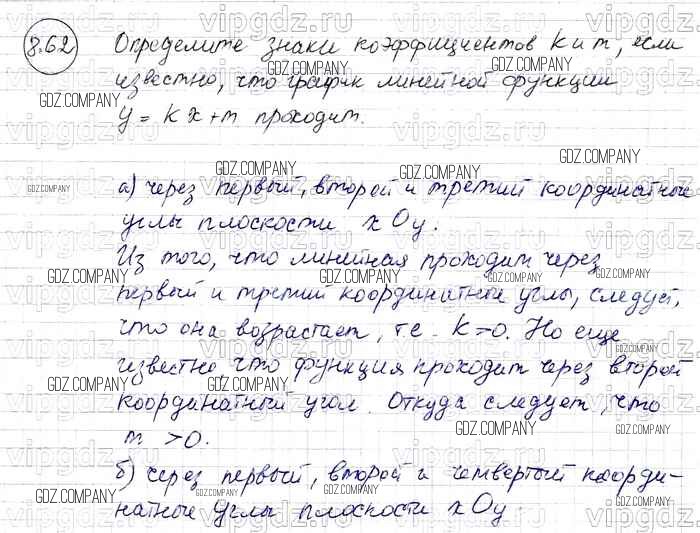 8.62 Определите знаки коэффициентов k и m, если
известно, что график линейной функции
y = kx+m проходит.
а) через первый, второй и третий координатные
углы плоскости xOy.
Из того, что линейная проходит через
первый и третий координатные углы, следует,
что она возрастает, т.е. k>0. Но еще
известно что функция проходит через второй
координатный угол. Откуда следует, что
m >0.
б) через первый, второй и четвертый коорди-
натные углы плоскости xOy.